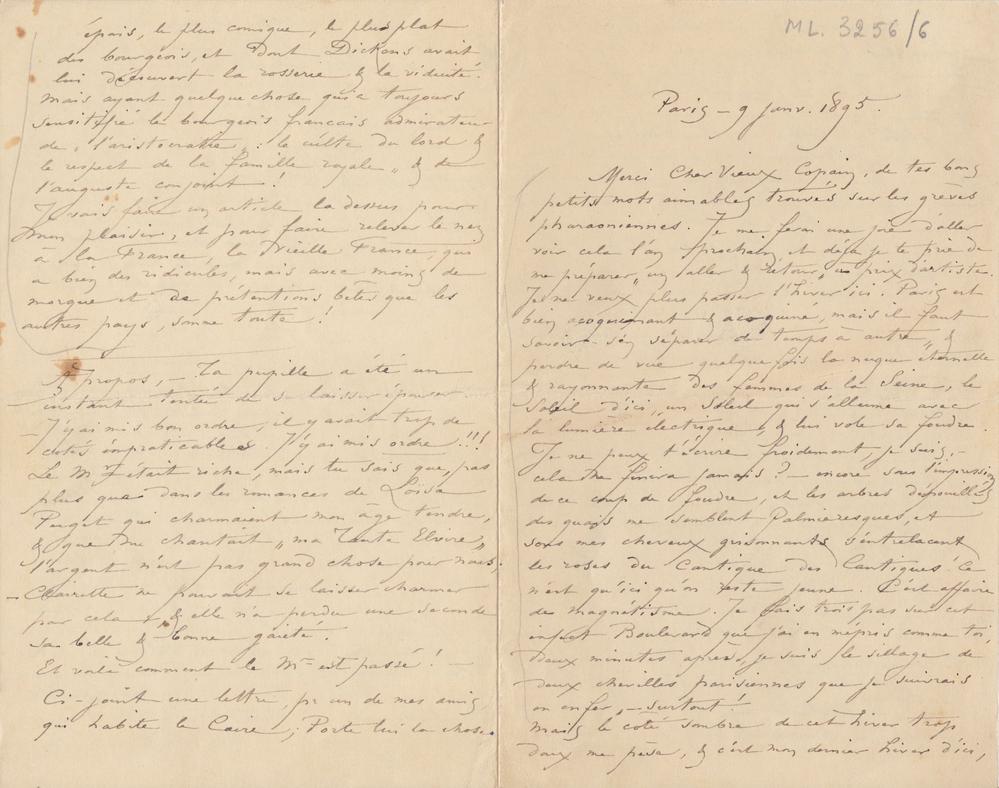 ML. 3256/6
Paris – 9 Janv. 1895.
Merci Cher Vieux Copain, de tes bons
petits mots aimables trouvés sur les grèves
pharaoniennes. Je me ferai une joie d'aller
voir cela l'an prochain, et déjà je te prie de
me préparer „un aller & retour„ au prix d'artiste.
Je ne veux plus passer l'hiver ici. Paris est
bien acoquinant & acoquine, mais il faut
savoir s'en séparer de temps à autre, &
perdre de vue quelque fois la nuque éternelle
& rayonnante des femmes de la Seine, le
Soleil d'ici, un Soleil qui s'allume avec
la lumière électrique, & lui vole sa foudre.
Je ne peux t'écrire froidement, je suis, –
cela ne finira jamais? – encore sous l'impression
de ce coup de foudre, et les arbres dépouillés
des quais me semblent Palmieresques, et
sous mes cheveux grisonnants s'entrelacent
les roses du Cantique des Cantiques. Ce
n'est qu'ici qu'on reste jeune. C'est affaire
de magnétisme. Je fais trois pas sur cet
infect Boulevard que j'ai en mépris comme toi,
deux minutes après, je suis le sillage de
deux chevilles parisiennes que je suivrais
en enfer, – surtout!
Mais le côté sombre de cet hiver trop
doux me pèse, & c'est mon dernier hiver d'ici,
épais, le plus comique, le plus plat
des bourgeois, et dont Dickens avait
lui découvert la rosserie & la viduité.
Mais ayant quelque chose qui a toujours
le bourgeois français admirateur
de „l'aristocratie„: le culte du lord &
le respect de la famille royale„ & de
l'auguste conjoint!
Je vais faire un article la dessus pour
mon plaisir, et pour faire relever le nez
à la France, la Vieille France, qui
a bien des ridicules, mais avec moins de
morgue et de prétentions bêtes que les
autres pays, somme toute!
A propos, – Ta pupille a été un
instant tentée de se laisser épouser
– J'y ai mis bon ordre, il y avait trop de
cotés impraticables. J'y ai mis ordre!!!
Le M. Z était riche, mais tu sais que, pas
plus que dans les romances de Loïsa
Puget qui charmaient mon âge tendre,
& que me chantait „ma Tante Elvire„
l'argent n'est pas grand chose pour nous;
– Clairette ne pouvait se laisser charmer
par cela, & elle n'a perdu une seconde
sa belle & bonne gaieté.
Et voilà comment le M. est passé! –
Ci-joint une lettre, pr un de mes amis
qui habite le Caire; Porte lui la chose